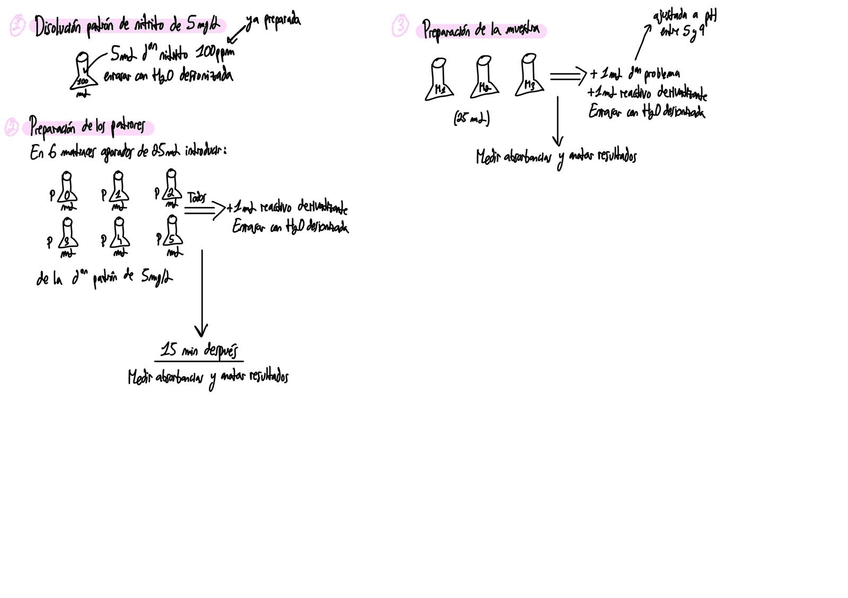 ① Disolución patrón de nitrito de 5mg/L
ya preparada
5mL dᵒⁿ nitrito 100ppm
enrasar con H₂O desionizada
100
mL
② Preparación de los patrones
En 6 matraces aforados de 25mL introducir:
P 0 mL P 1 mL P 2 mL
Todos
+1mL reactivo derivatizante
Enrasar con H₂O desionizada
P 3 mL P 4 mL P 5 mL
de la dᵒⁿ patrón de 5mg/L
15 min después
Medir absorbancias y anotar resultados
③ Preparación de la muestra
ajustada a pH
entre 5 y 9
M₁ M₂ M₃
(25 mL)
+1mL dᵒⁿ problema
+1mL reactivo derivatizante
Enrasar con H₂O desionizada
Medir absorbancias y anotar resultados